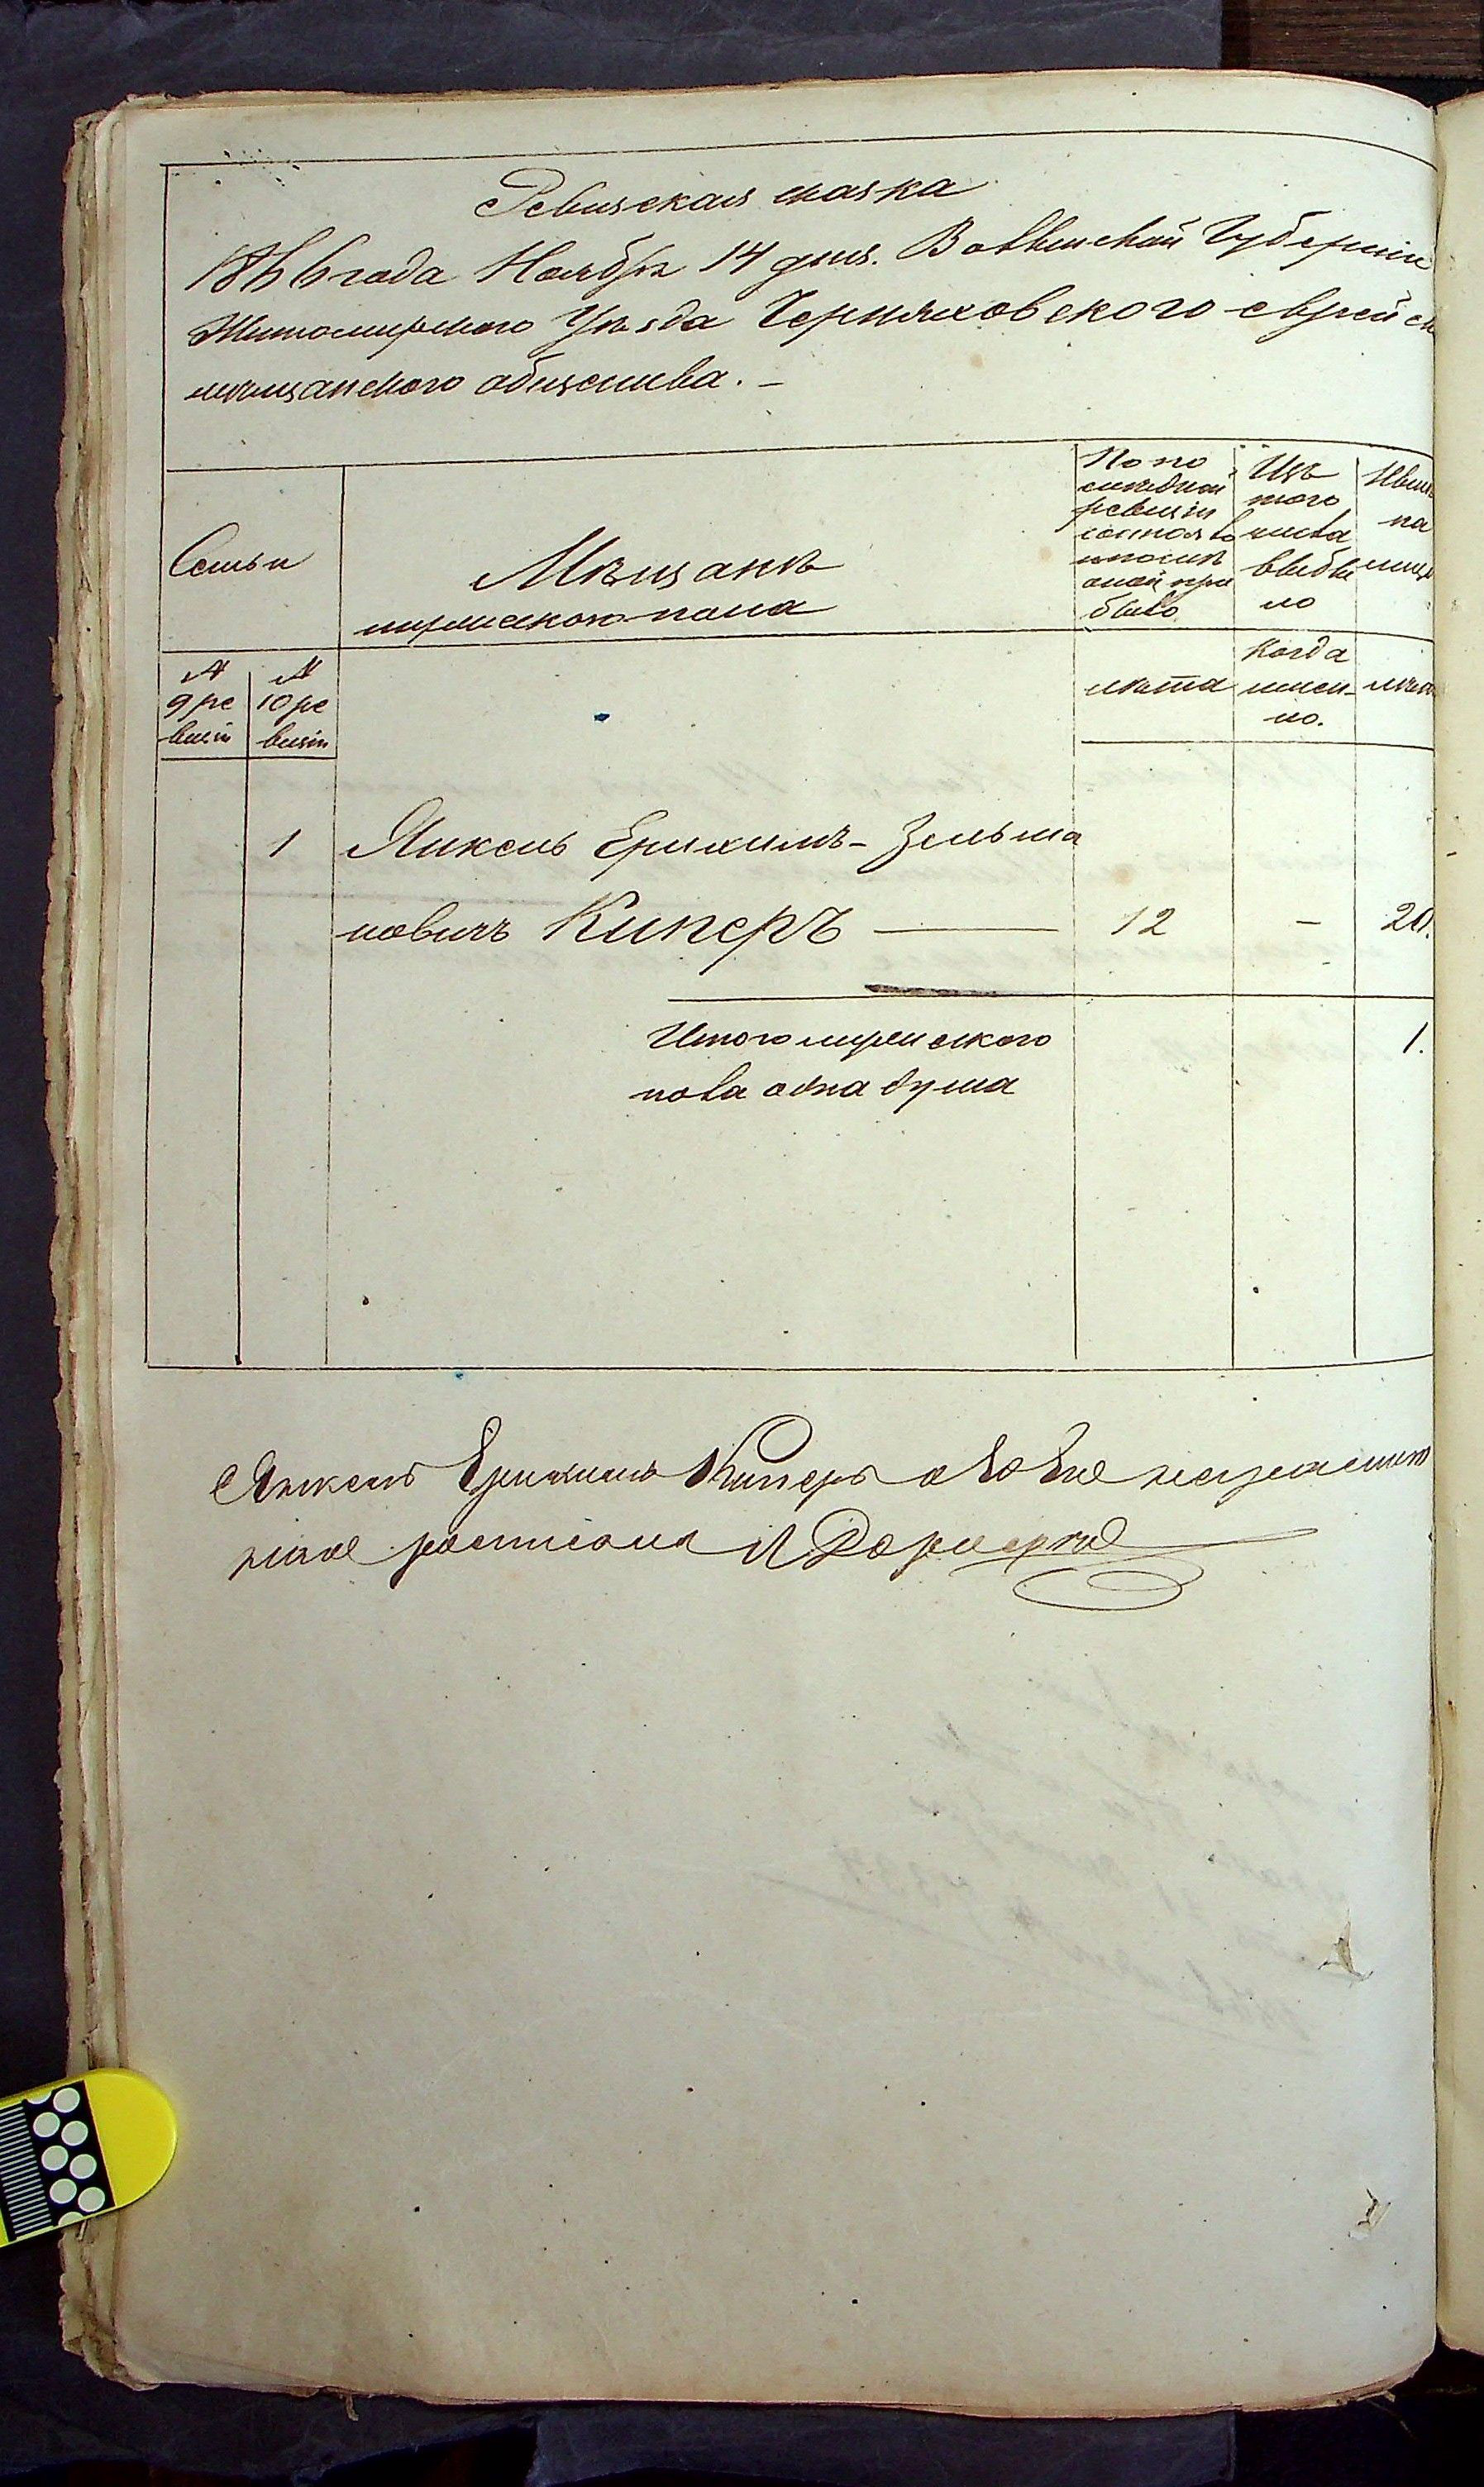 Ревизская сказка
1866 года Ноября 14 дня. Волынской Губерніи
Житомирского Уѣзда Черняховского еврейск
мѣщанского общества. —
Семьи
Мѣщанъ
мужеского пола
По по
слѣдней
ревизіи
состояло
и послѣ
оной при
было
Изъ
того
числа
выбы
ло
Нынѣ
на
лицо
№
9 ре
визіи
№
10 ре
визіи
лѣта
Когда
имен-
но.
лѣта
1 Янкель Ерихимъ-Зельма
новичъ Киперъ — 12 — 20.
Итого мужеского 1.
пола одна душа
Янкель Ерихимъ Киперъ а во Его неграмотн
росписался